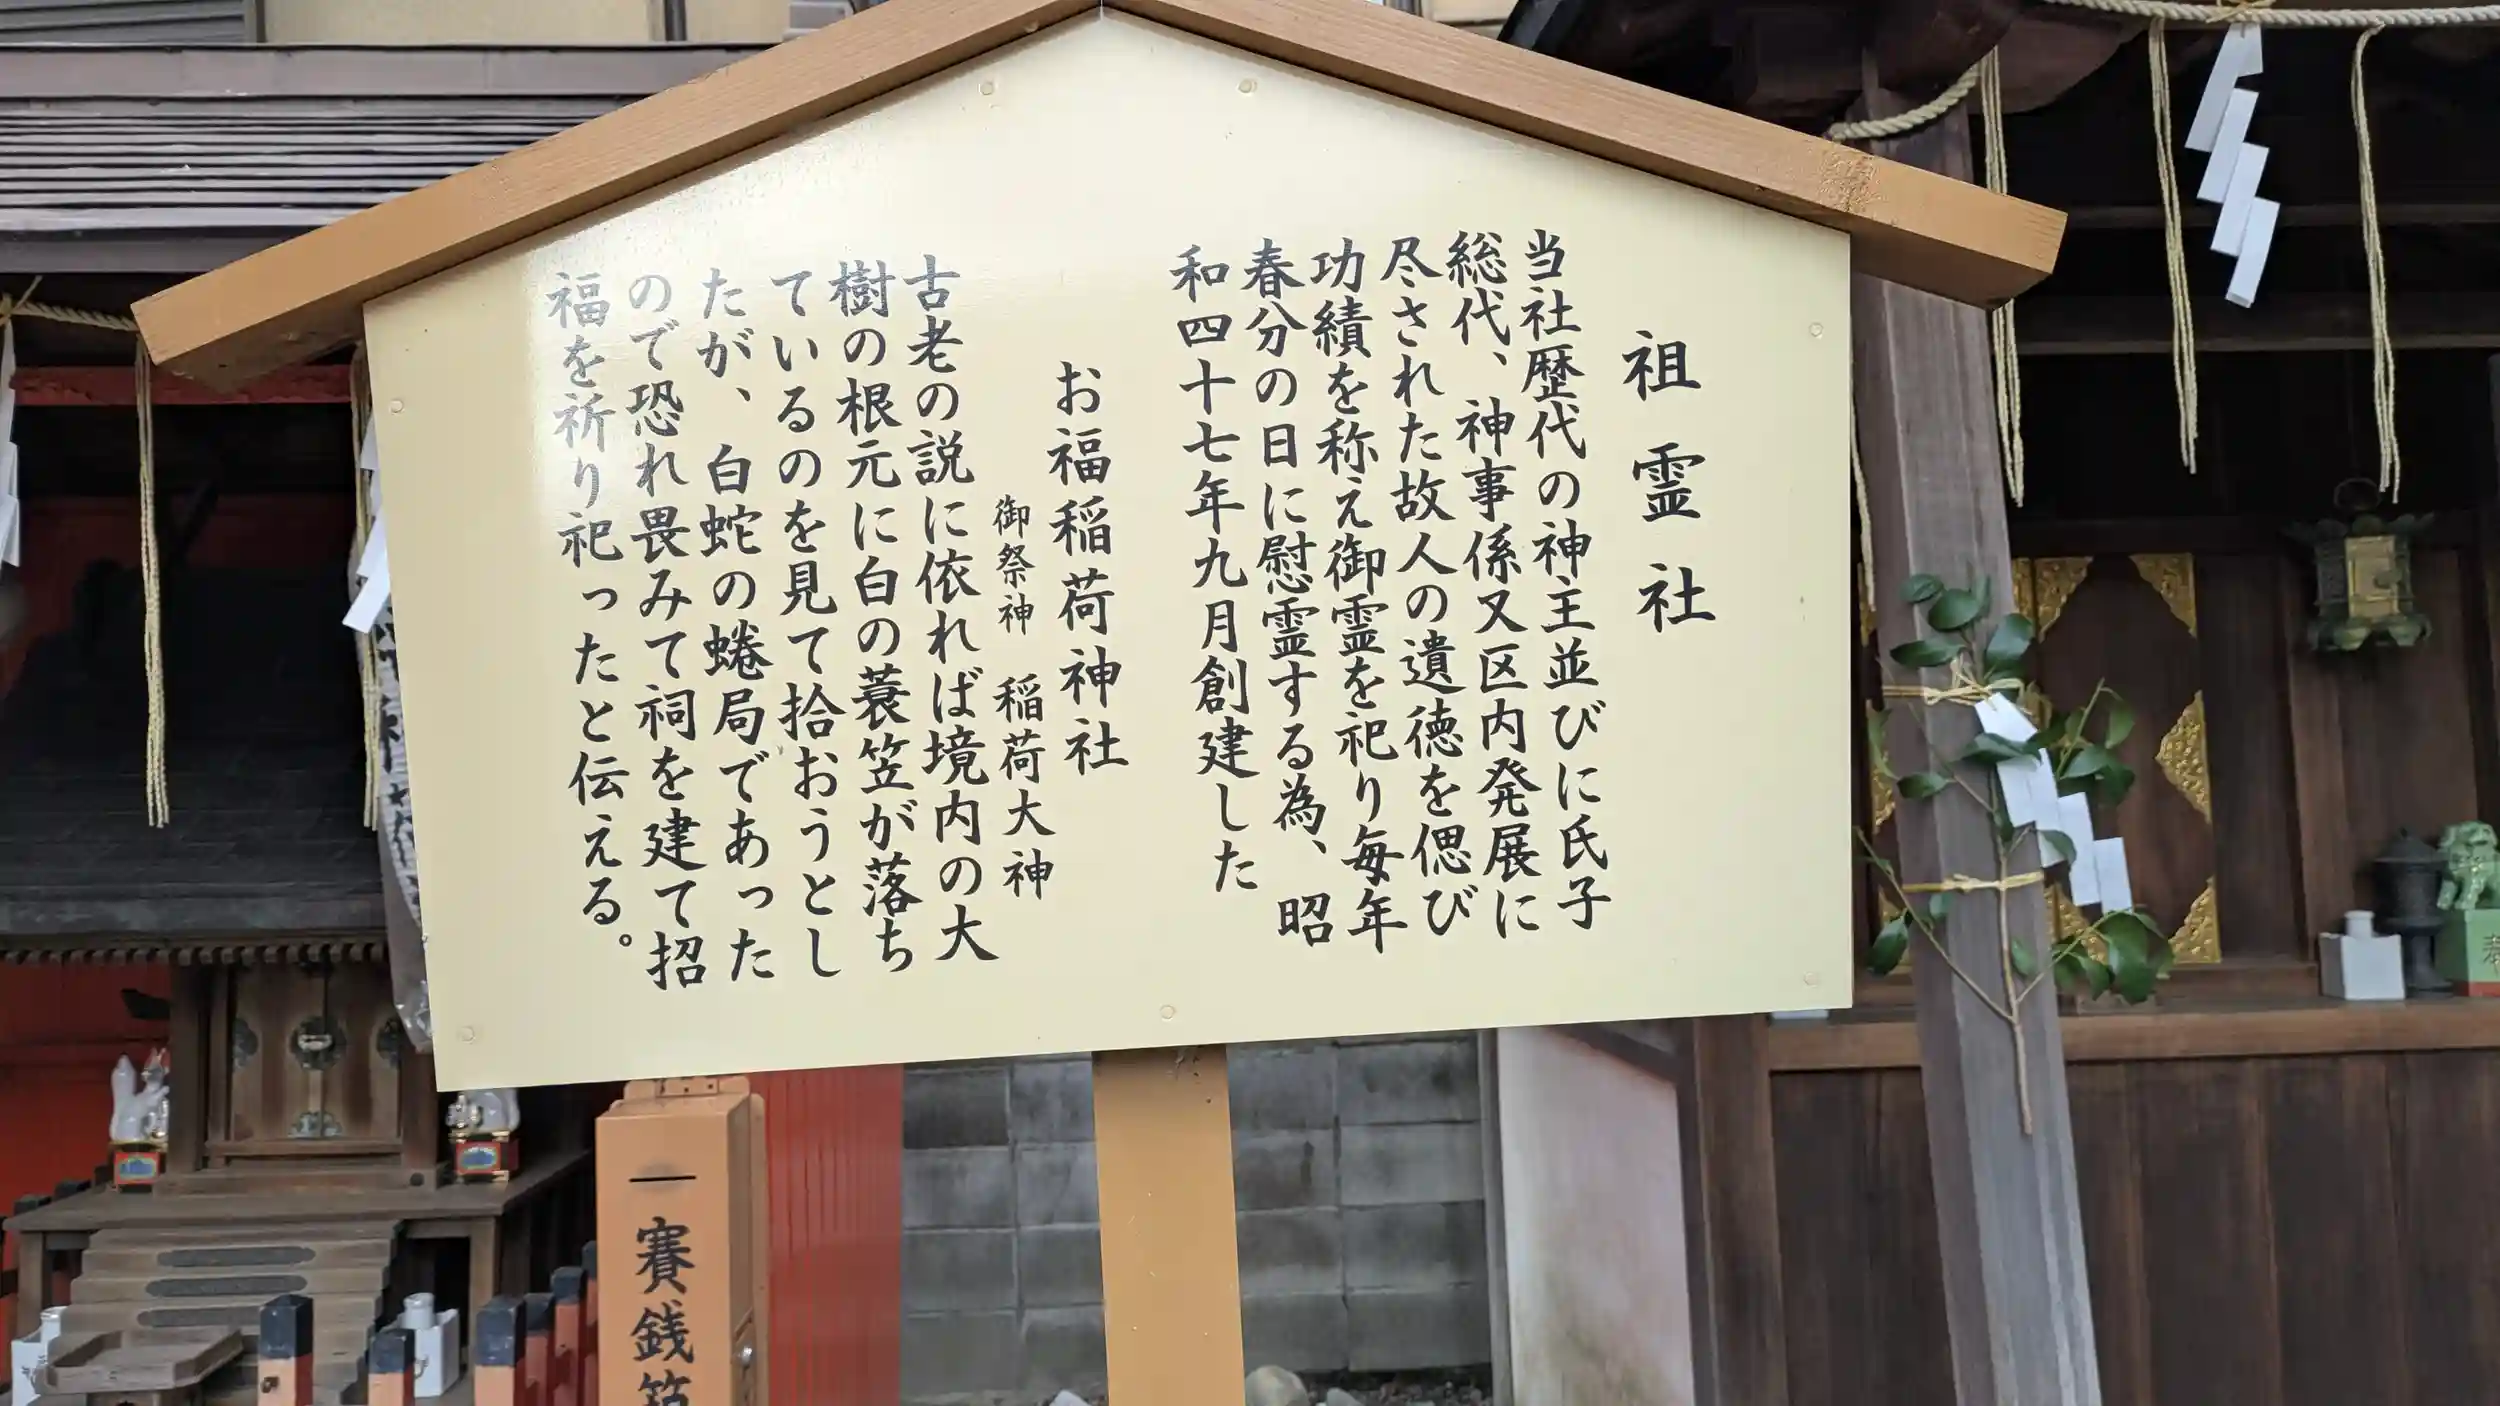 祖霊社
当社歴代の神主並びに氏子
総代、神事係又区内発展に
尽された故人の遺徳を偲び
功績を称え御霊を祀り毎年
春分の日に慰霊する為、昭
和四十七年九月創建した
お福稲荷神社
御祭神 稲荷大神
古老の説に依れば境内の大
樹の根元に白の蓑笠が落ち
ているのを見て拾おうとし
たが、白蛇の蜷局であった
ので恐れ畏みて祠を建て招
福を祈り祀ったと伝える。
一賽銭箱